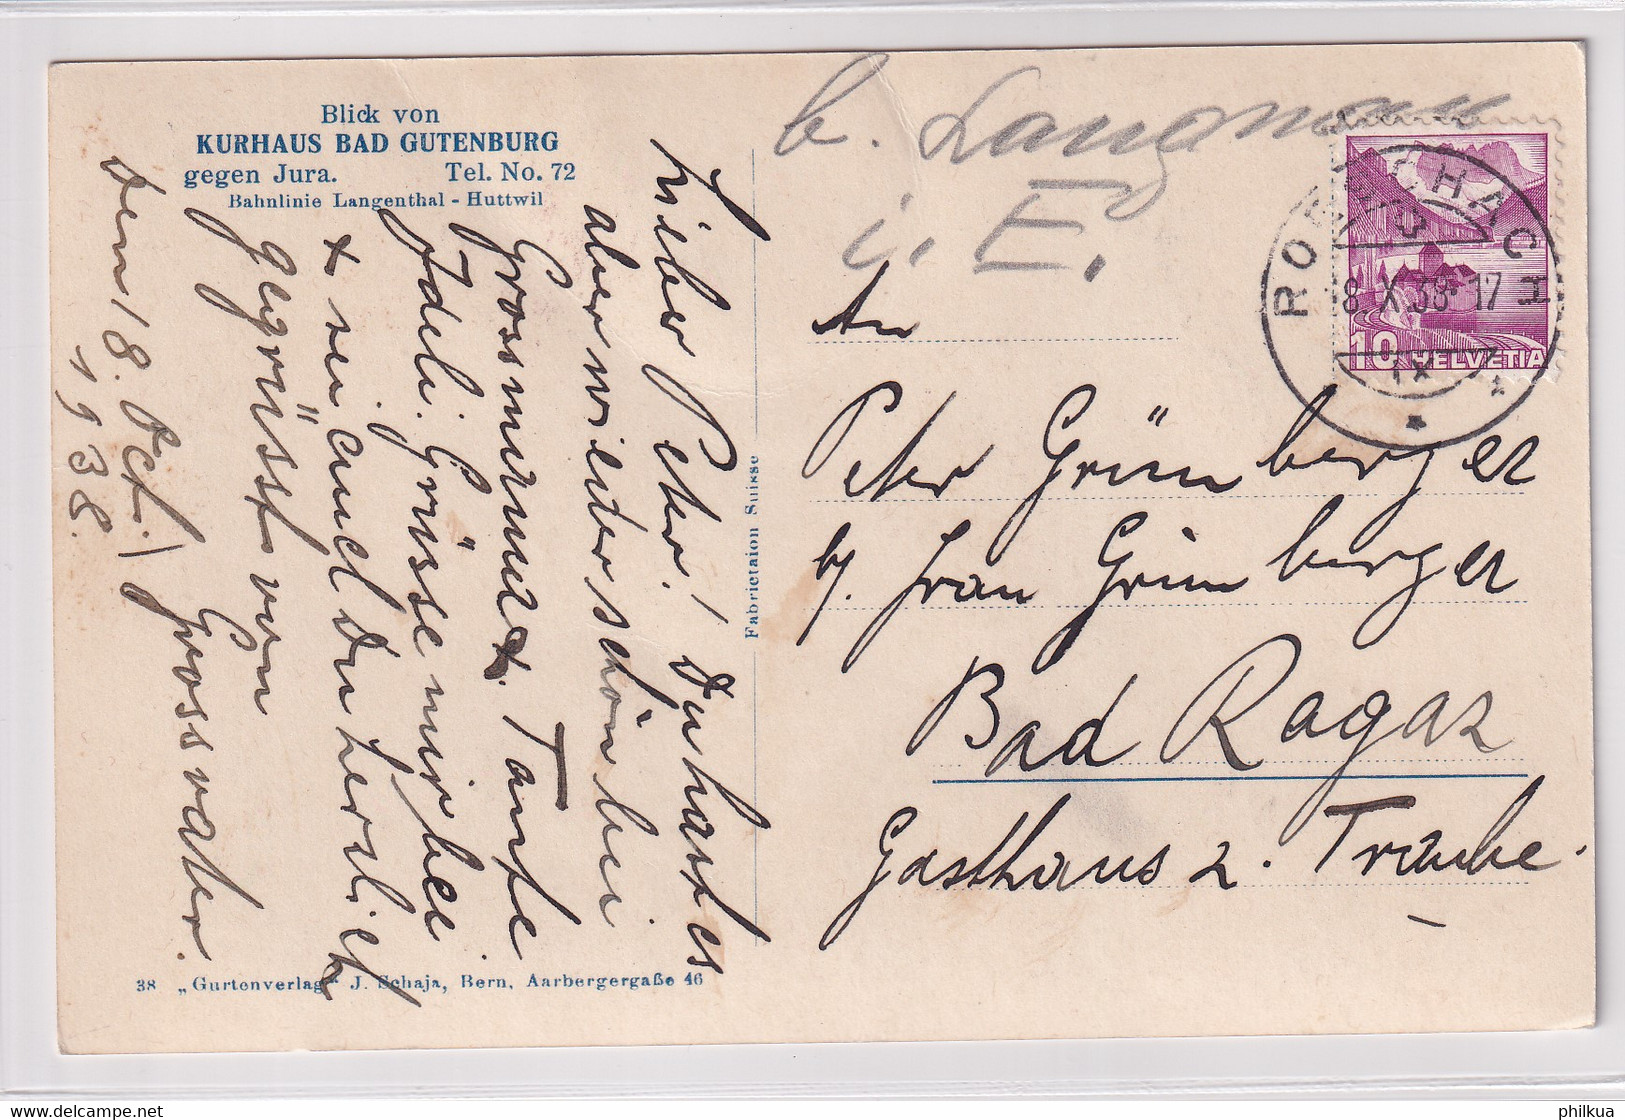 Blick von
KURHAUS BAD GUTENBURG
gegen Jura. Tel. No. 72
Bahnlinie Langenthal - Huttwil
Lieber Peter! Du hast es
aber wieder schön bei
Grossmama. Tante
Adeli. Grüsse mir bei
+ sei auch Du herzlich
gegrüsst von
Grossvater.
den 18. Oct./
1938.
38 „Gurtenverlag“ J. Schaja, Bern, Aarbergergaße 46
Fabrictaion Suisse
b. Langmann
i. E.
RORSCHACH
8. X. 38-17
10 HELVETIA
An
Peter Grünberger
b/. Frau Grünberger
Bad Ragaz
Gasthaus z. Traube.
philkua